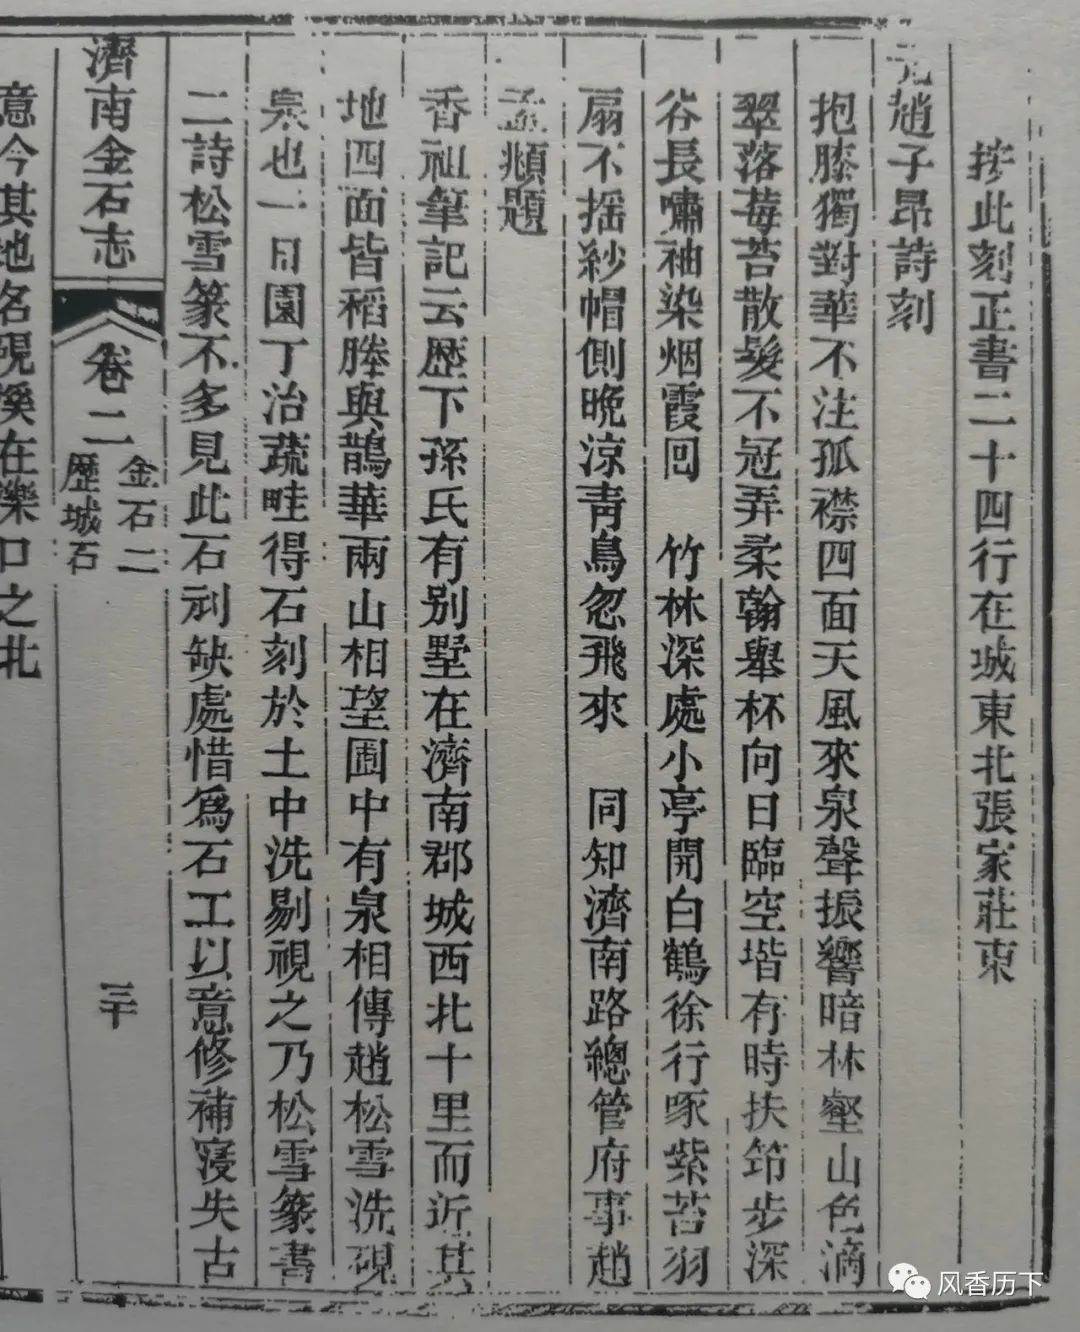 按此刻正書二十四行在城東北張家莊東
元趙子昂詩刻
抱膝獨對華不注孤襟四面天風來泉聲振響暗林壑山色滴
翠落莓苔散髮不冠弄柔翰舉杯向日臨空堦有時扶筇步深
谷長嘯袖染烟霞回 竹林深處小亭開白鶴徐行啄紫苔羽
扇不揺紗帽側晩涼青鳥忽飛來 同知濟南路總管府事趙
孟頫題
香祖筆記云歴下孫氏有别墅在濟南郡城西北十里而近其
地四面皆稻塍與鵲華兩山相望圃中有泉相傳趙松雪洗硯
泉也一日園丁治蔬畦得石刻於土中洗剔視之乃松雪篆書
二詩松雪篆不多見此石刓缺處惜為石工以意修補寖失古
濟南金石志
卷二
金石二
歷城石
三十
意今其地名硯溪在濼口之北
风香历下